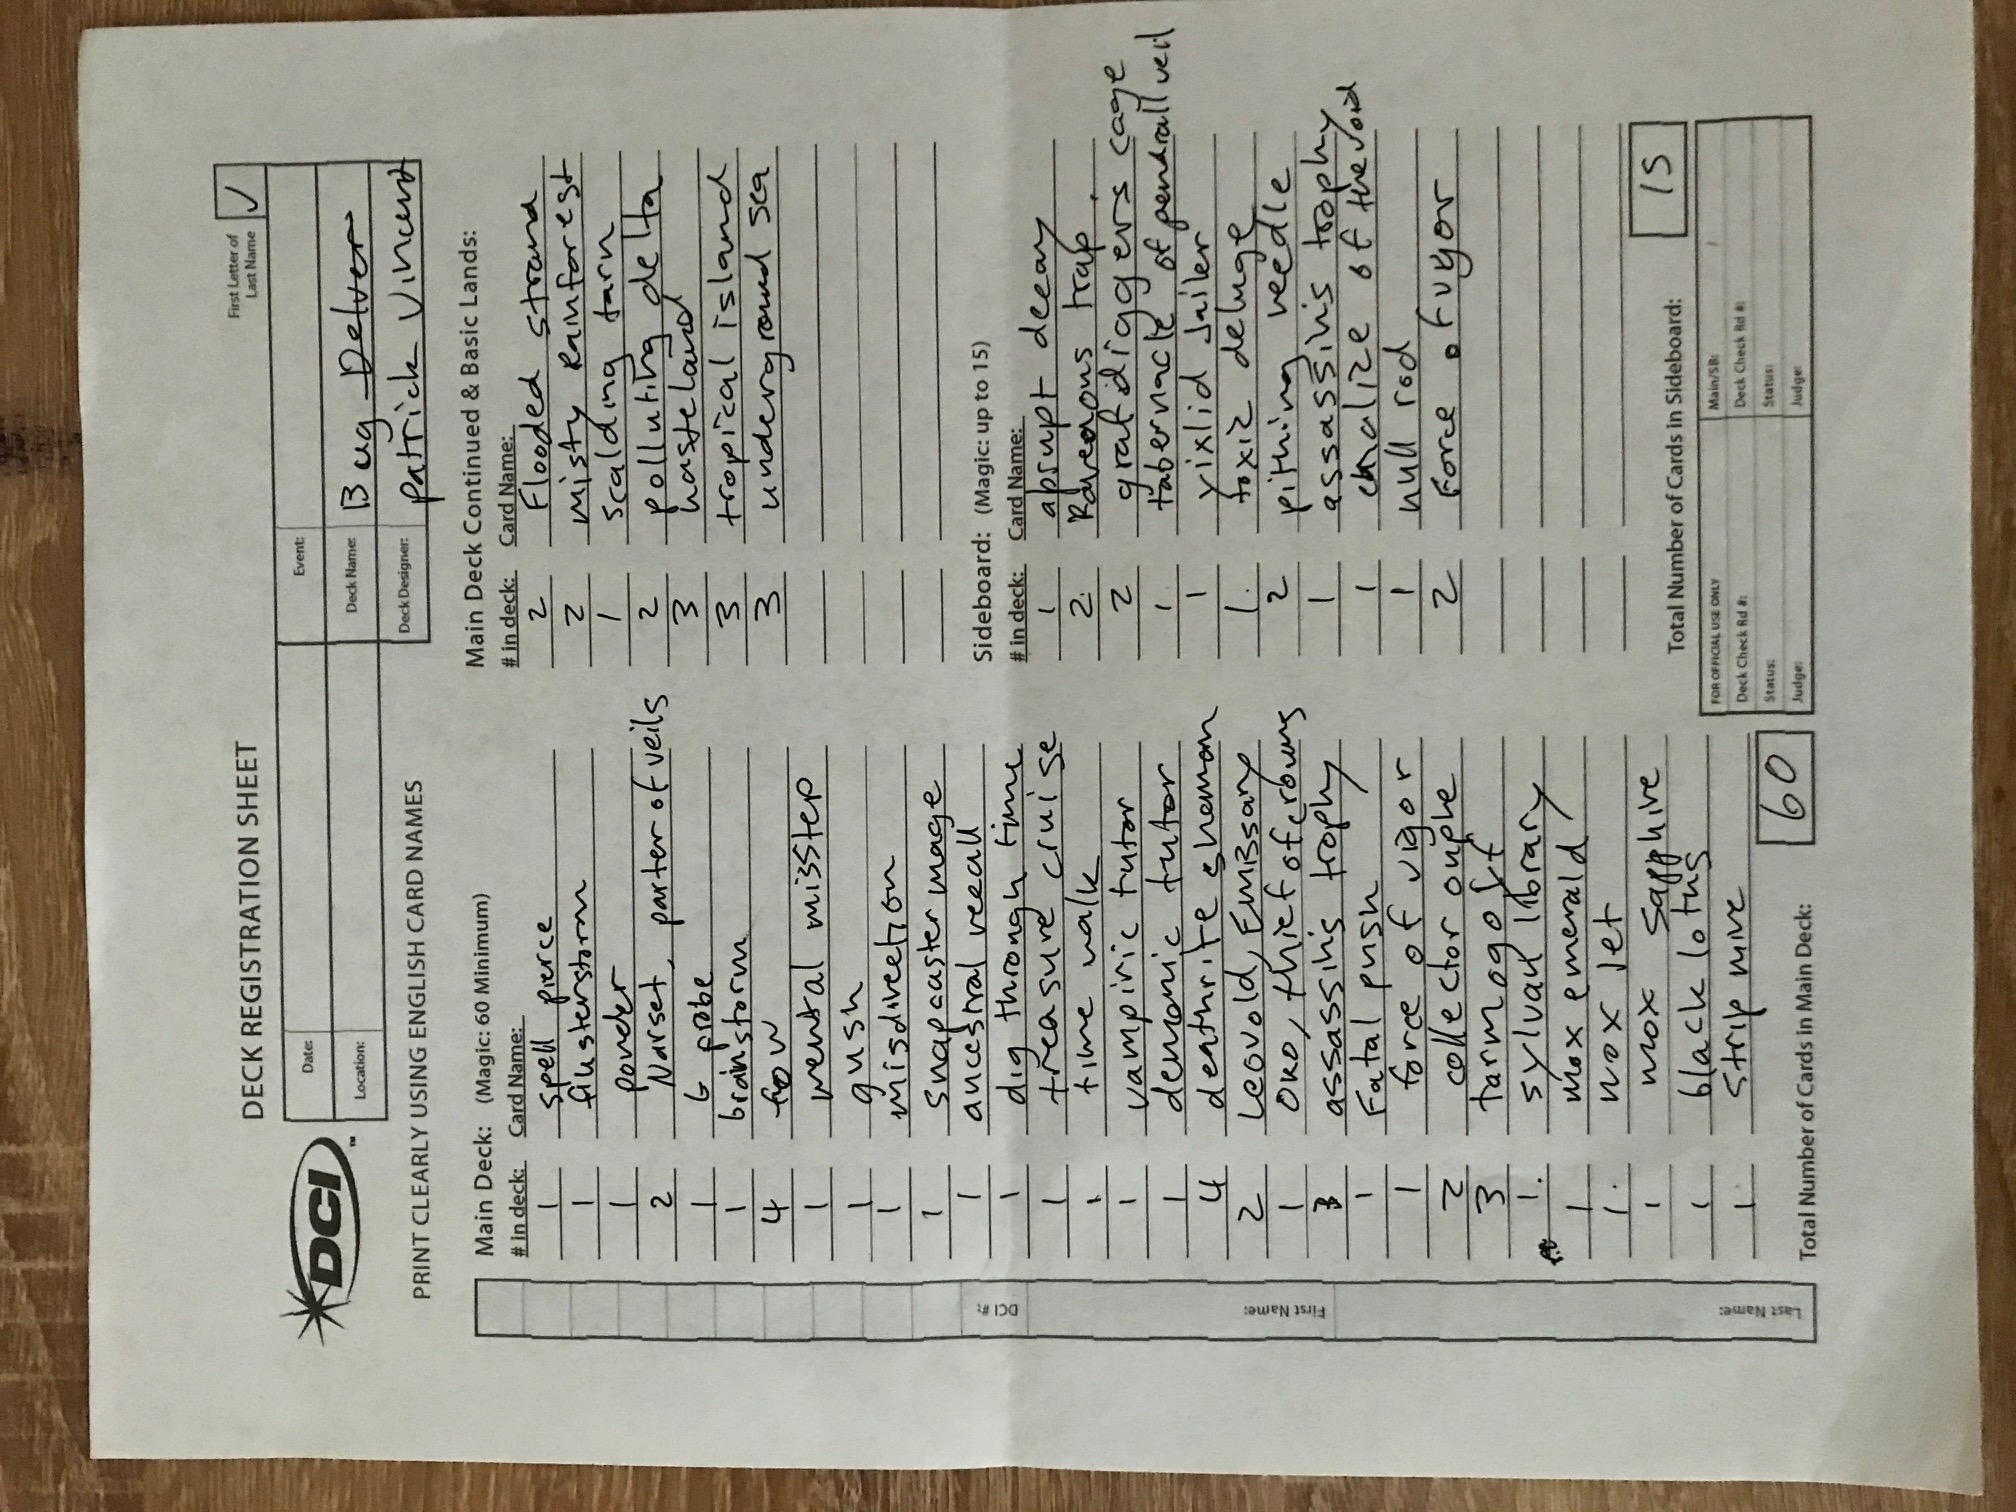 DECK REGISTRATION SHEET
First Letter of
Last Name
V
DCI
Date:
Event:
Location:
Deck Name: Bug Delver
Deck Designer: patrick Vincent
PRINT CLEARLY USING ENGLISH CARD NAMES
Main Deck: (Magic: 60 Minimum)
# in deck: Card Name:
1 spell pierce
1 flusterstorm
1 ponder
2 Narset, parter of veils
1 G probe
1 brainstorm
4 fow
1 mental misstep
1 gush
1 misdirection
1 snapcaster mage
1 ancestral recall
1 dig through time
1 treasure cruise
1 time walk
1 vampiric tutor
1 demonic tutor
4 deathrite shaman
2 Leovold, Emissary
1 Oko, thief of crowns
3 assassins trophy
1 Fatal push
1 force of vigor
2 collector ouphe
3 tarmogoyf
1. sylvan library
1 mox emerald
1. mox Jet
1 mox sapphire
1 black lotus
1 strip mine
Total Number of Cards in Main Deck: 60
Main Deck Continued & Basic Lands:
# in deck: Card Name:
2 Flooded strand
2 misty Rainforest
1 scalding tarn
2 polluting delta
3 wasteland
3 tropical island
3 underground sea
Sideboard: (Magic: up to 15)
# in deck: Card Name:
1 abrupt decay
2. Ravenous trap.
2 grafdiggers cage
1. tabernacle of pendrall veil
1 yixlid Jailer
1. toxic deluge
2 pithing needle
1 assassins trophy
1 chalize of the void
1 null rod
2 Force of vigor
Total Number of Cards in Sideboard: 15
FOR OFFICIAL USE ONLY
Main/SB: /
Deck Check Rd #:
Deck Check Rd #:
Status:
Status:
Judge:
Judge:
DCI #:
First Name:
Last Name: